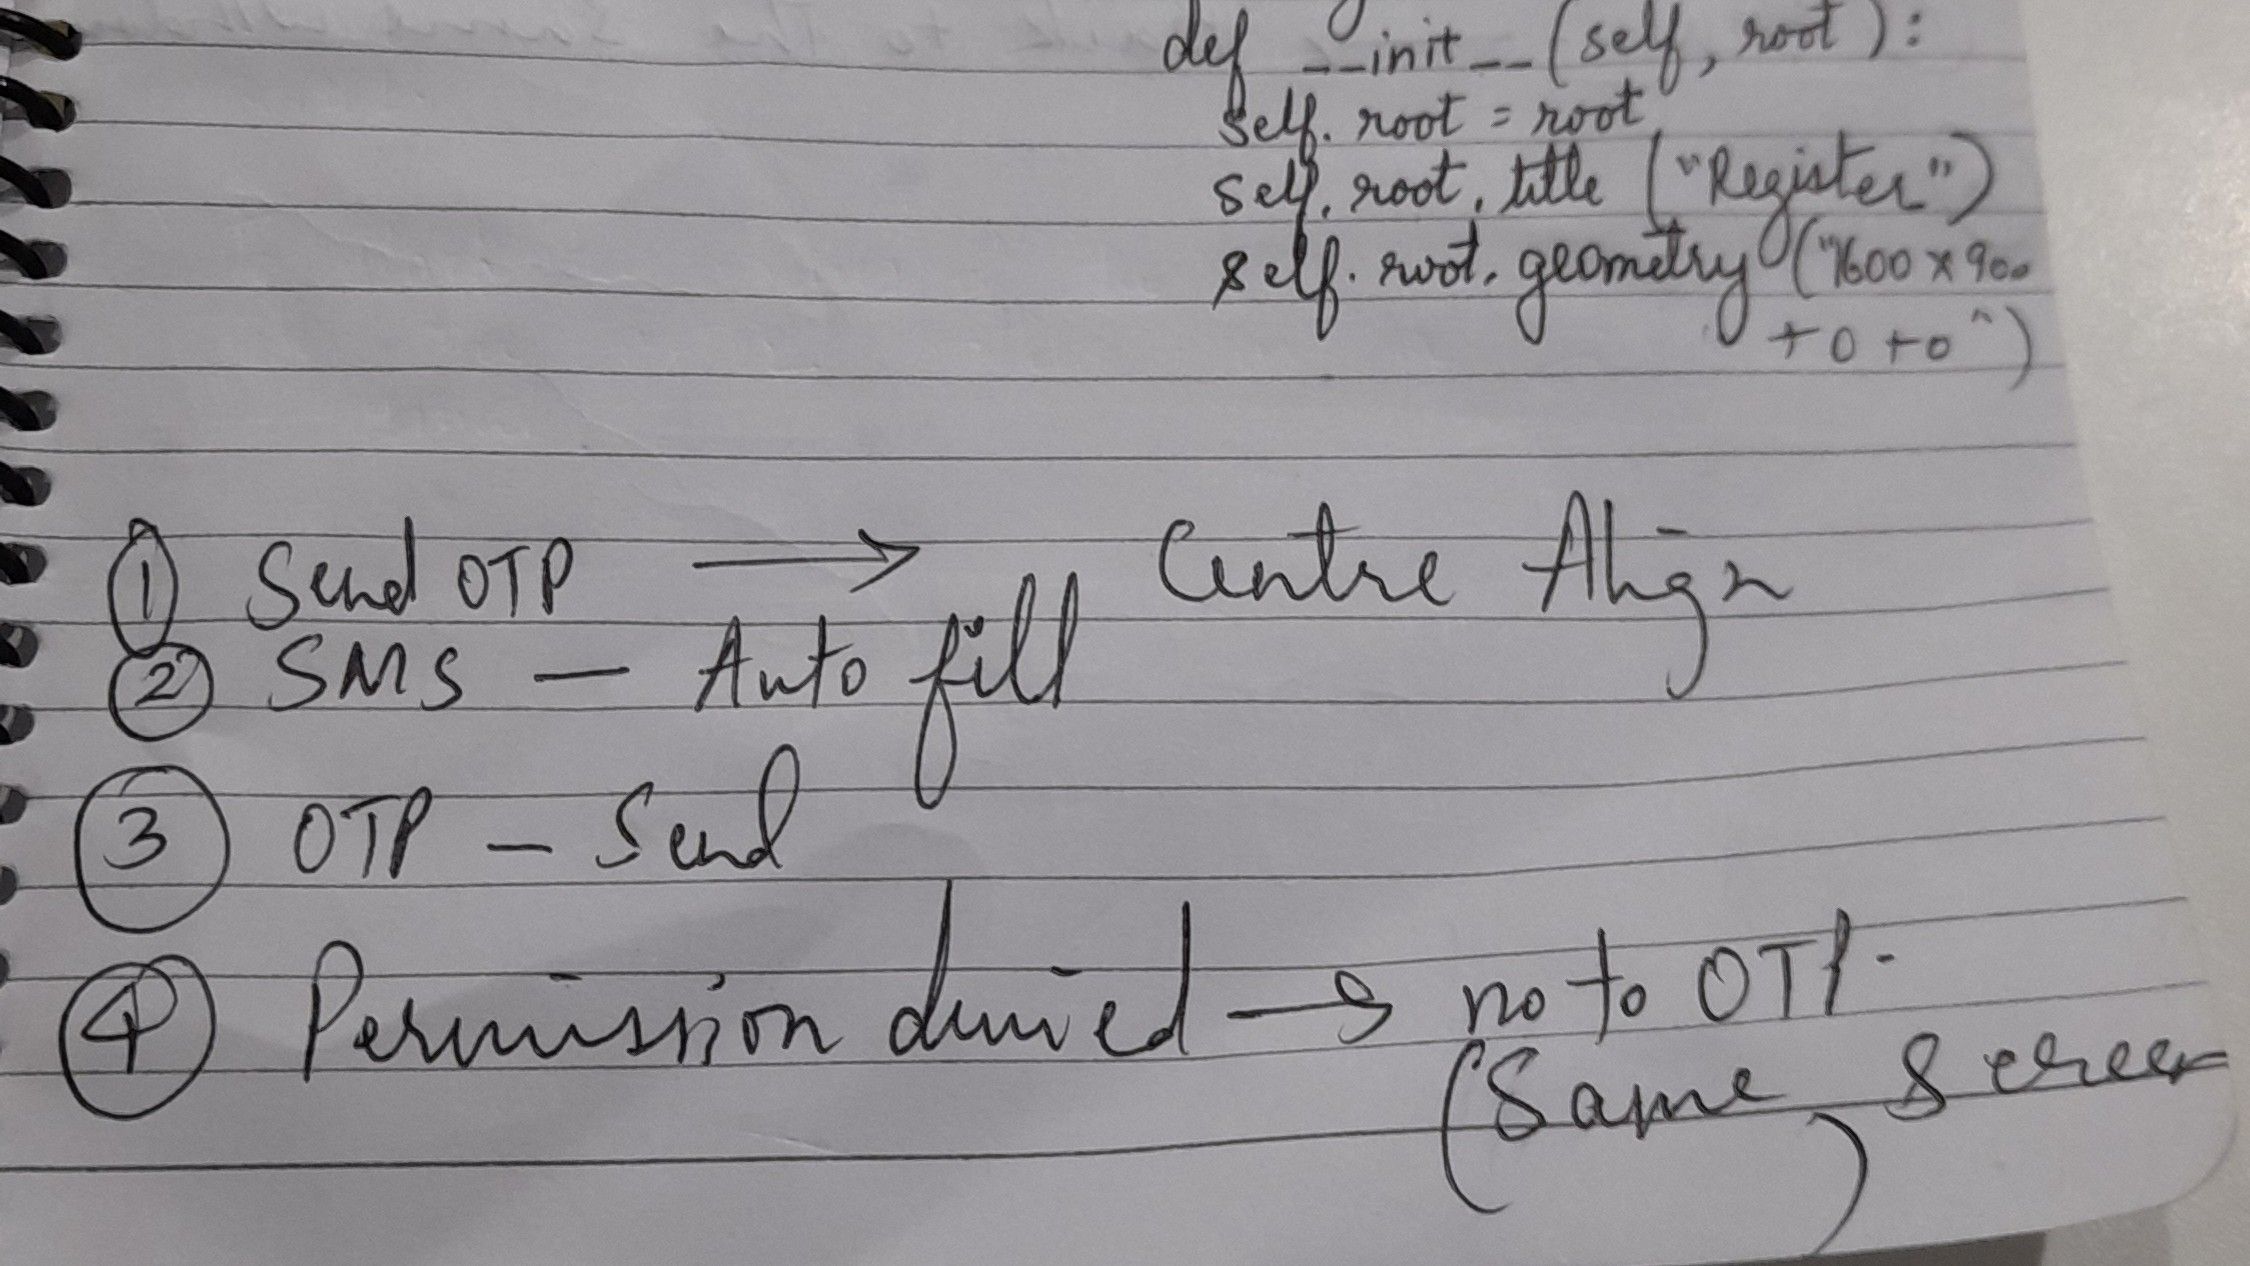 def __init__(self, root):
self.root = root
self.root.title ("Register")
self.root.geometry ("1600x900
+0+0")
① Send OTP → Centre Align
② SMS — Auto fill
③ OTP — Send
④ Permission denied → no to OTP.
(Same Screen
)